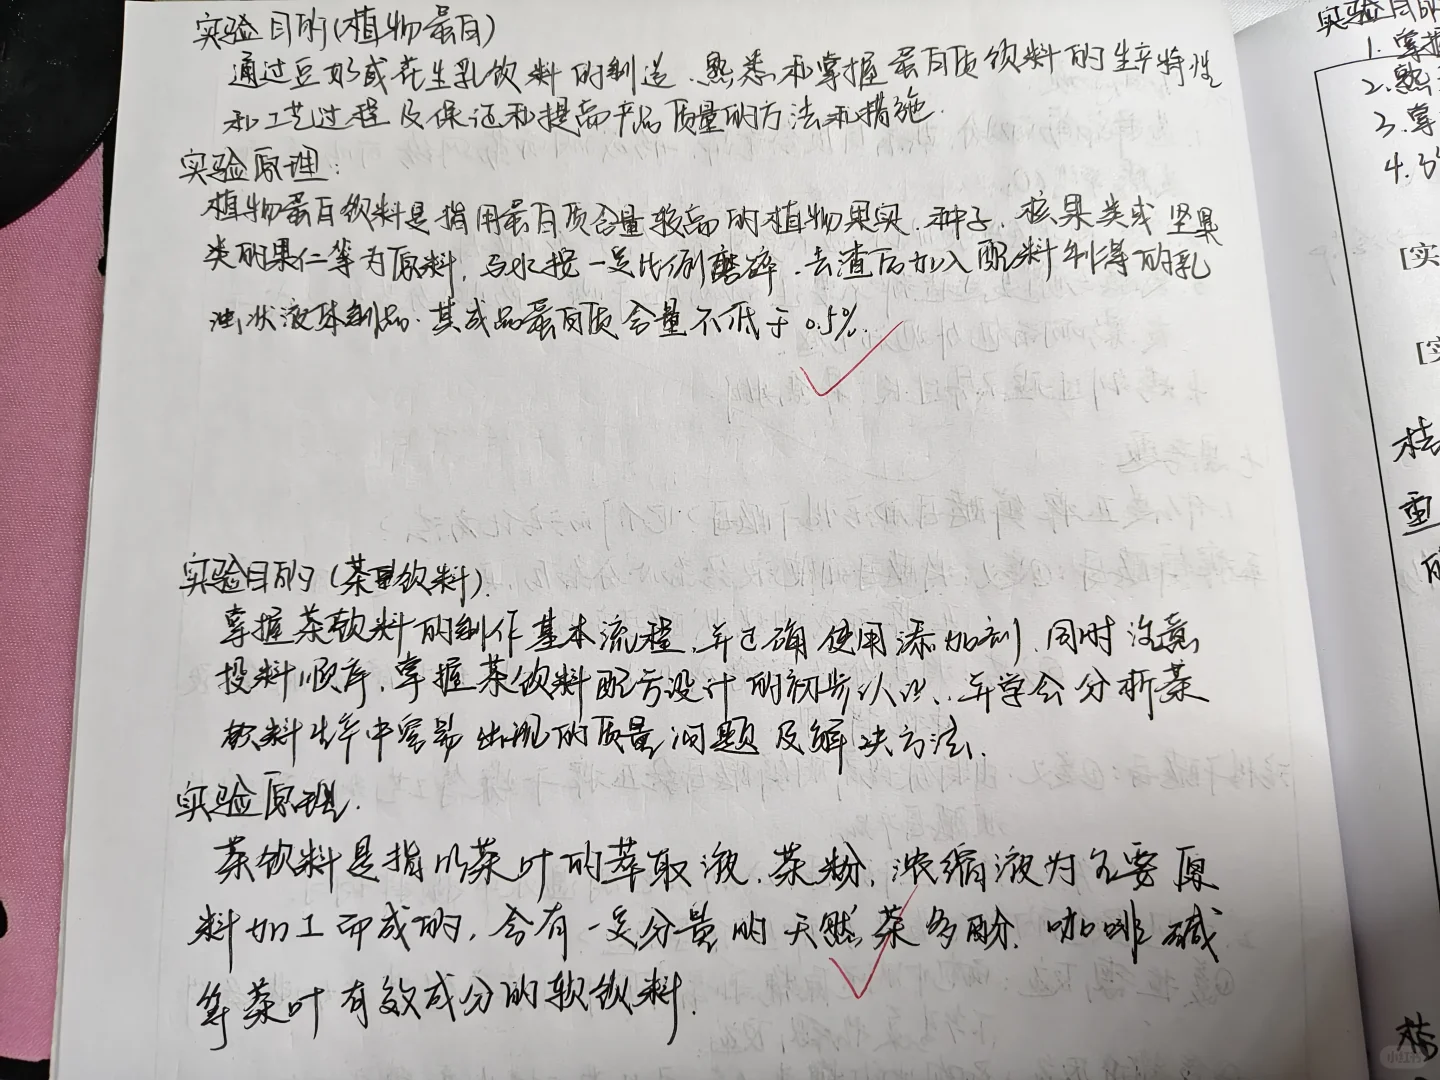 实验目的(植物蛋白)
通过豆奶或花生乳饮料的制造、熟悉和掌握蛋白质饮料的生产特性
和工艺过程及保证和提高产品质量的方法和措施.
实验原理:
植物蛋白饮料是指用蛋白质含量较高的植物果实、种子、核果类或坚果
类的果仁等为原料,与水按一定比例磨碎、去渣后加入配料制得的乳
浊状液体制品.其成品蛋白质含量不低于0.5%.
实验目的(茶饮料).
掌握茶饮料的制作基本流程,并正确使用添加剂.同时注意
投料顺序,掌握茶饮料配方设计的初步认识、并学会分析茶
饮料生产中容易出现的质量问题及解决方法.
实验原理.
茶饮料是指以茶叶的萃取液、茶粉、浓缩液为主要原
料加工而成的,含有一定分量的天然茶多酚、咖啡碱
等茶叶有效成分的软饮料.
实验目的
1. 掌握
2. 熟
3. 掌
4.
[实
[实
重
小红书